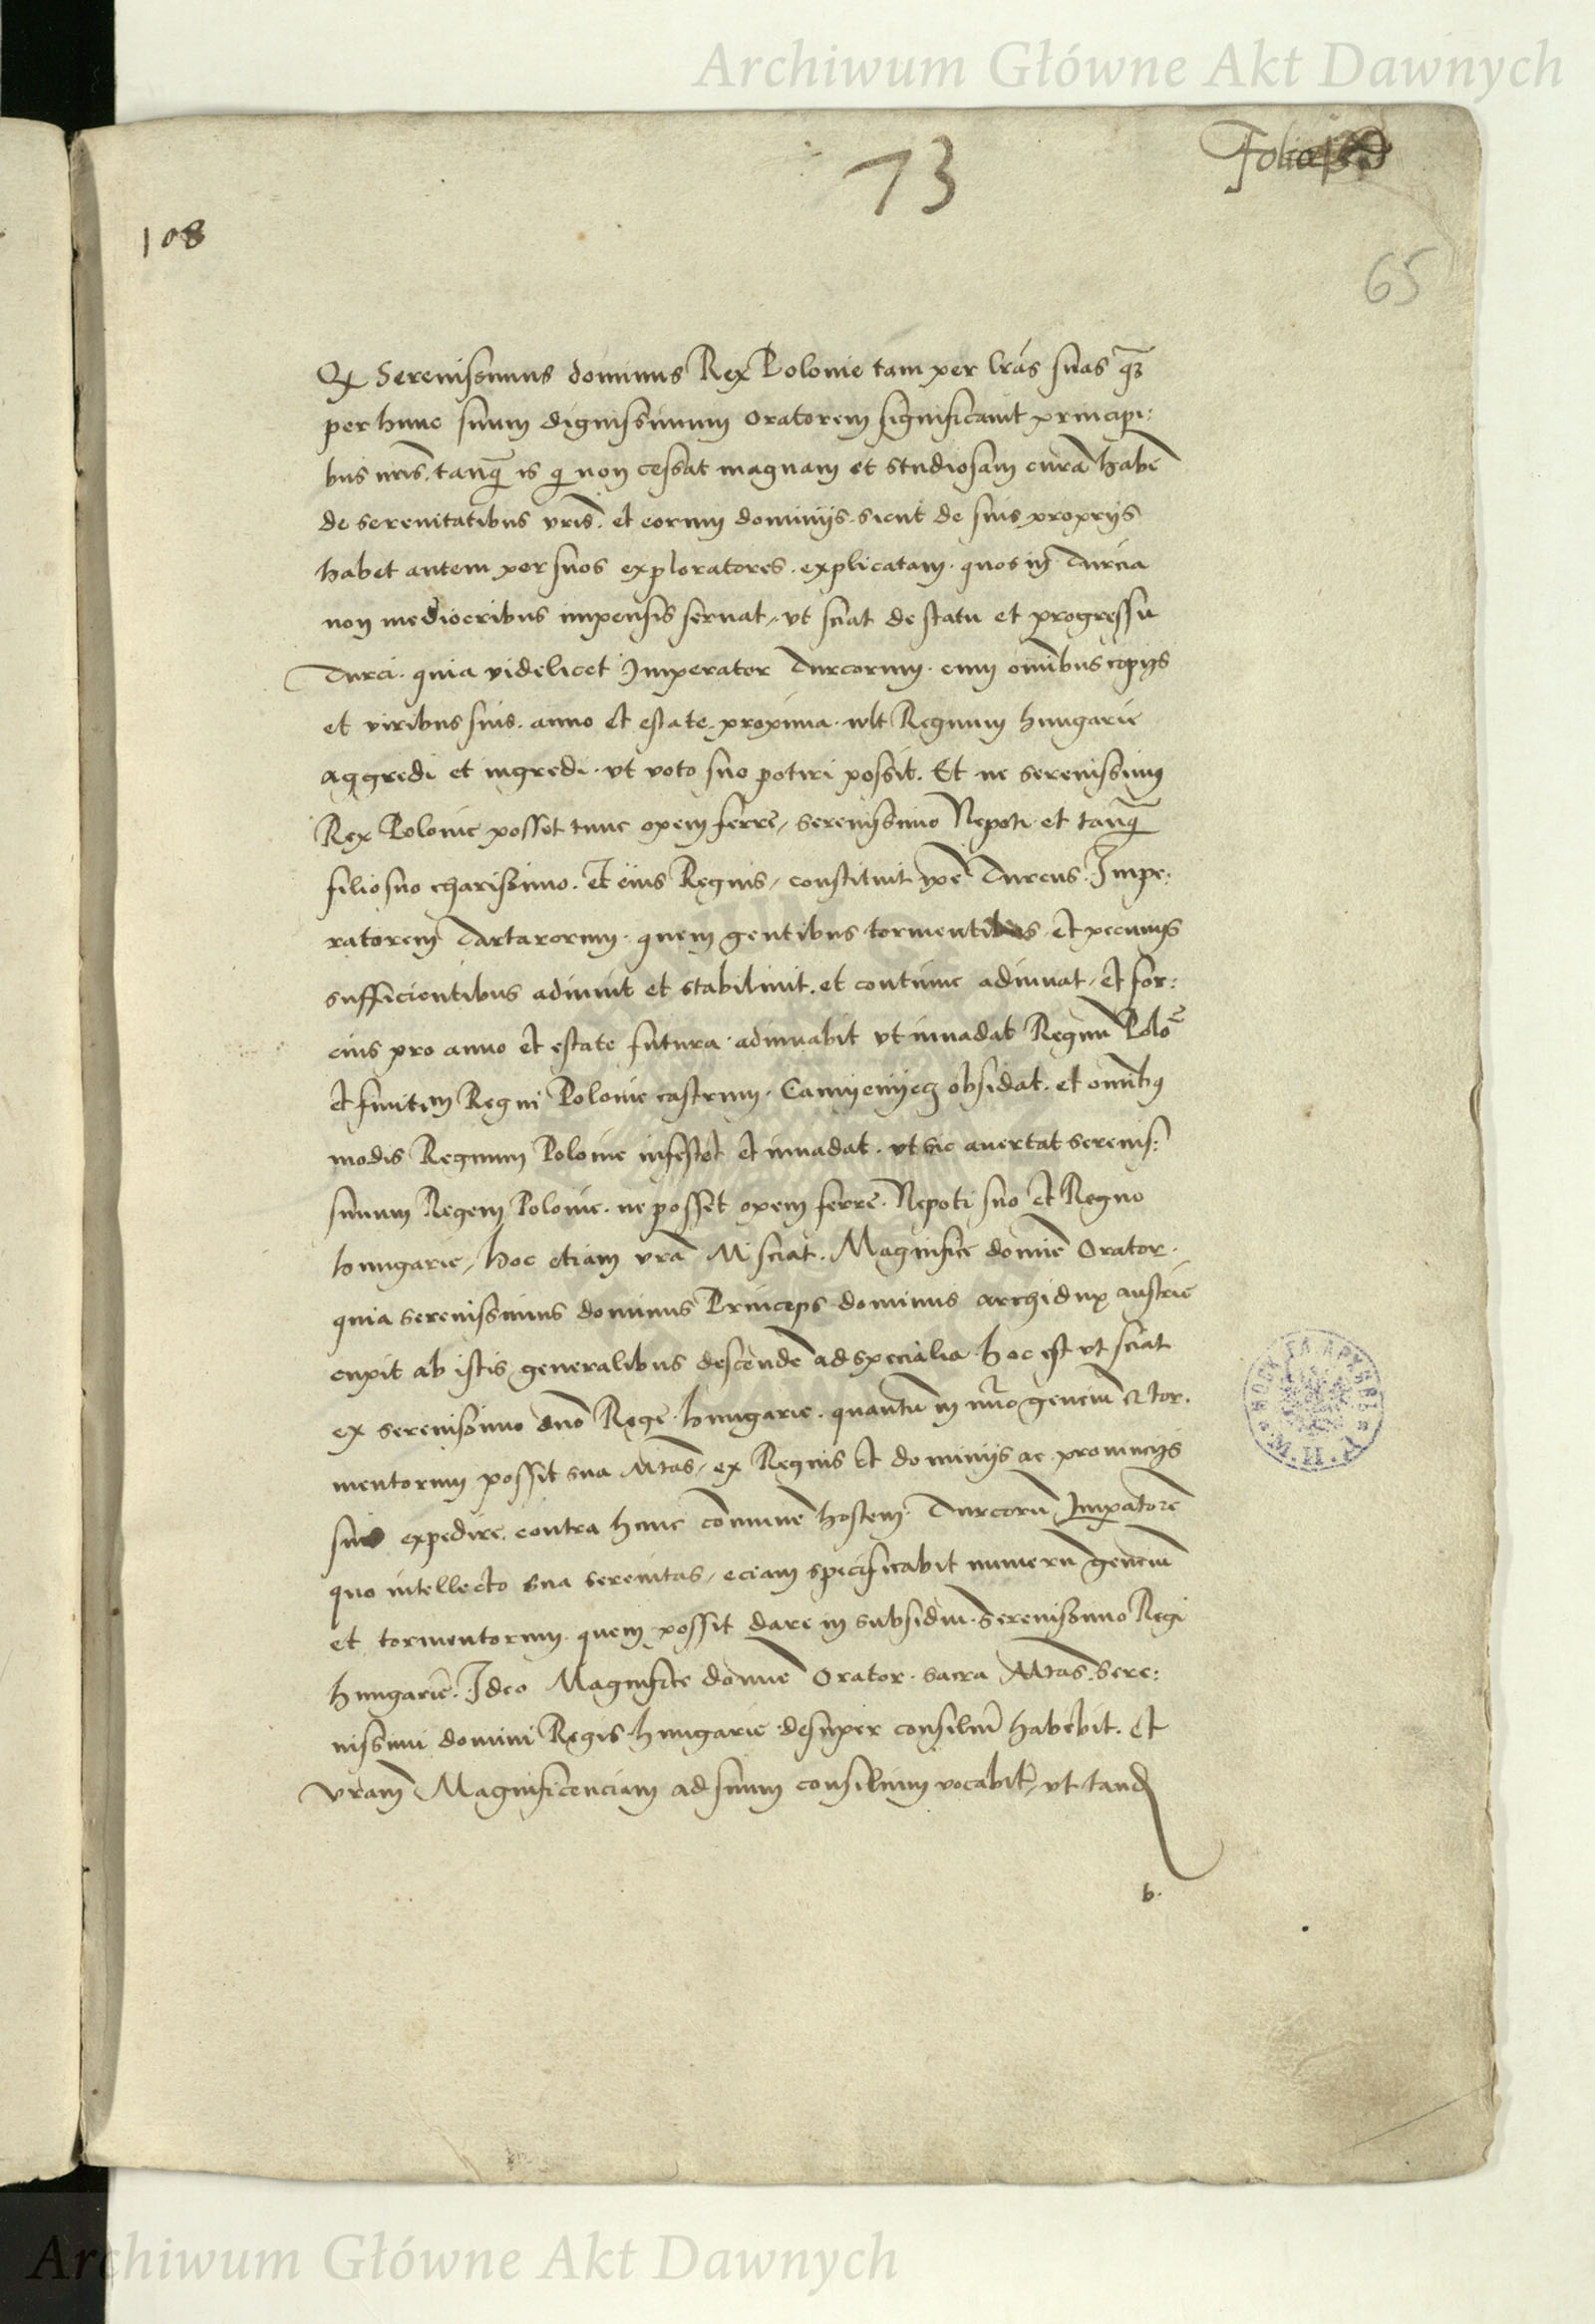 Archiwum Główne Akt Dawnych
13
Folio
108
65
Qx Serenissimus dominus Rex Polonie tam per lrãs suas q̃z
per hunc suum dignissimum oratorem significauit principi:
bus nr̃is. tanq̃ is q̃ non cessat magnam et studiosam curã habẽ
de serenitatibus vr̃is. et eorum dominijs. sicut de suis proprijs
habet autem per suos exploratores. explicatam. quos in Turcia
non mediocribus impensis seruat, vt sciat de statu et progressu
Turci. quia videlicet Imperator Turcorum. cum omnĩbus copijs
et viribus suis. anno et estate. proxima. vult Regnum hungarie
aggredi et ingredi. vt voto suo potiri possit. Et ne serenissimus
Rex Polonie posset tunc opem ferrẽ, serenissimo Nepoti et tanq̃
filio suo charissimo. Et eius Regnis, constituit ipẽ Turcus. Impe:
ratorem Tartarorum. quem gentibus tormentibus et pecunijs
sufficientibus adiuuit et stabiliuit. et continue adiuuat, et for:
cius pro anno et estate futura. adiuuabit vt inuadat Regnũ Polõ
et finitim Regni Polonie castrum. Camyenyecz obsidat. et omnĩbus
modis Regnum Polonie infestet et inuadat. vt sic auertat serenis:
simum Regem Polonie. ne posset opem ferrẽ. Nepoti suo et Regno
hungarie, hoc etiam vrã M sciat. Magnifice domĩe Orator.
quia serenissimus dominus Princeps dominus archidux austrie
cupit ab istis generalibus descendẽ ad specialia. hoc est vt sciat
ex serenissimo dnõ Regẽ. hungarie. quantũ in nũro genciũ et tor.
mentorum possit sua Mtãs, ex Regnis et dominijs ac prouincijs
suis expedire. contra hunc cõmunẽ hostem. Turcorũ Impatorẽ
quo intellecto sua serenitas, eciam specificabit numerũ genciũ
et tormentorum. quem possit dare in subsidiũ. serenissimo Regi
hungariẽ. Ideo Magnifice domĩe Orator. sacra Mtãs. Sere:
nissimi domini Regis. hungarie. desuper consiliũ habebit. et
vram̃ Magnificenciam ad suum consilium vocabit, vt tand
b.
Archiwum Główne Akt Dawnych